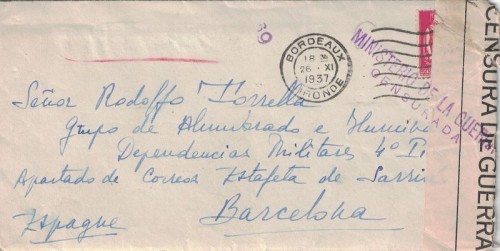 69
BORDEAUX
18 30
26 · XI
1937
GIRONDE
MINISTERIO DE LA GUERRA
CENSURADA
CENSURA DE GUERRA
Señor Rodolfo Torrella
Grupo de Alumbrado e
Dependencias Militares 4º
Apartado de Correos Estafeta de Sarriá
Espagne
Barcelona